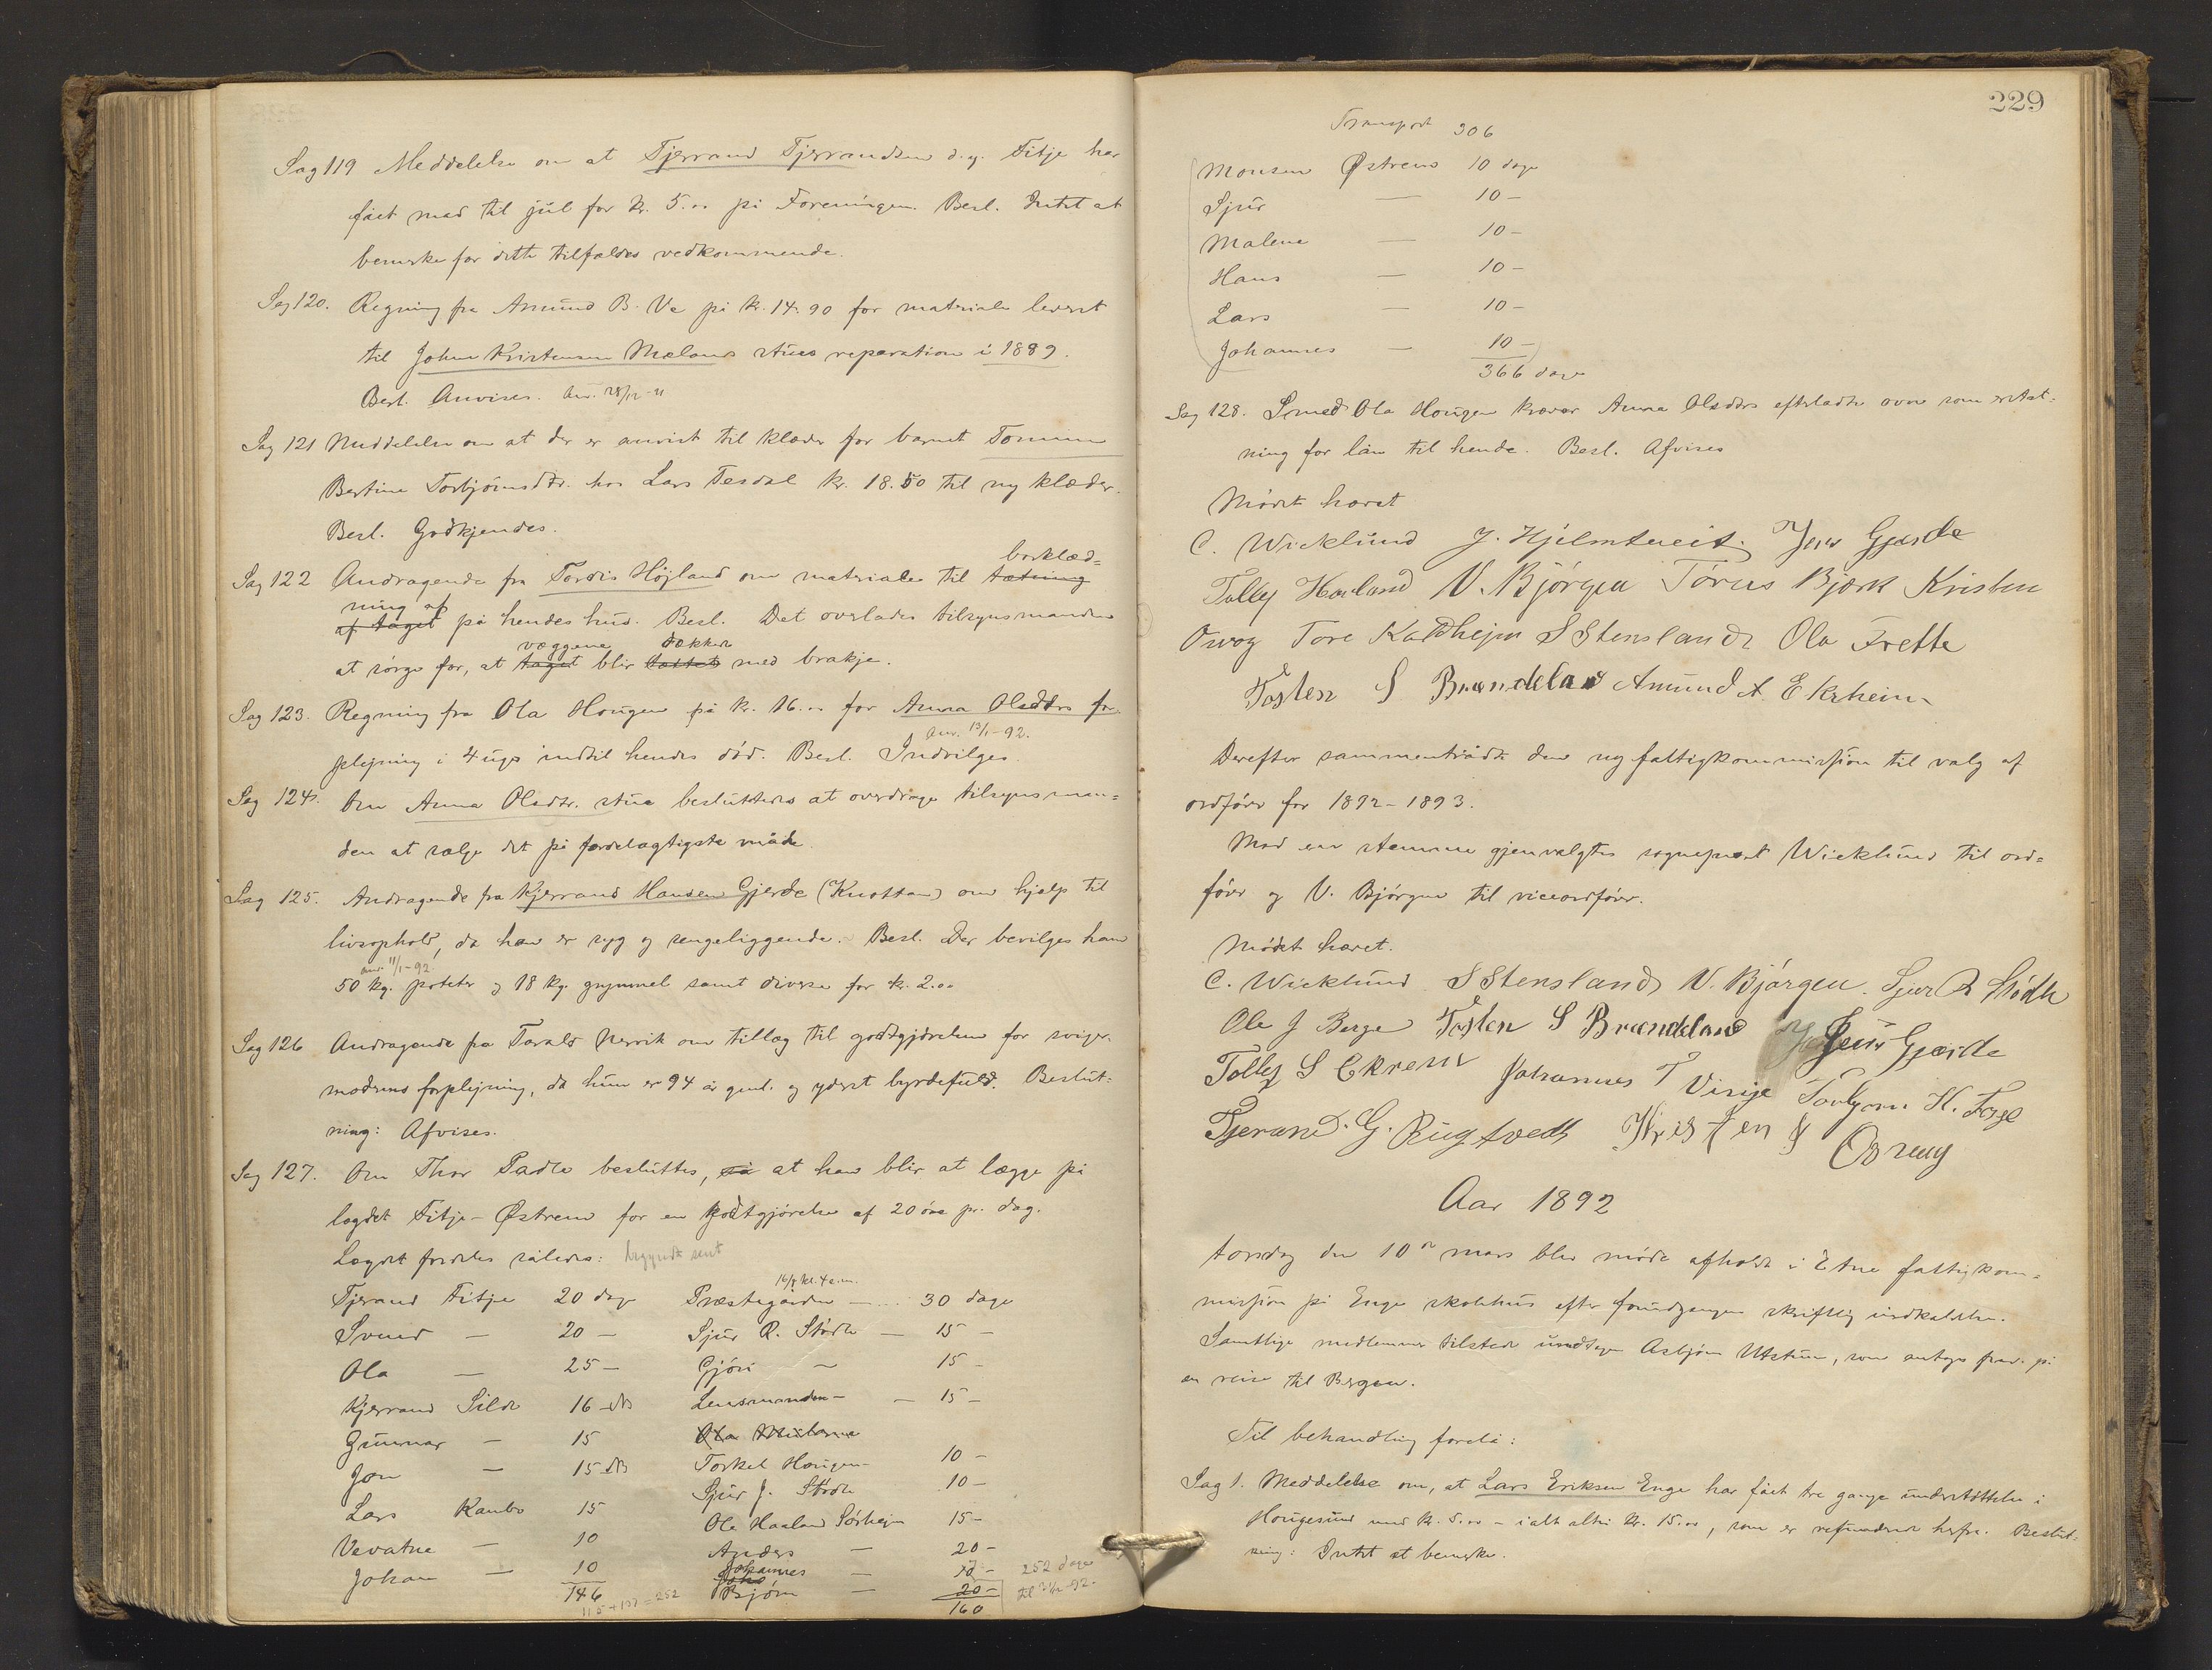 Sag 119 Meddelelse om at Tjerand Tjerandsen d.y. Fitje har
fået mad til jul for kr. 5.00 på Foreningen. Besl. Intet at
bemerke for dette tilfældes vedkommende.
Sag 120. Regning fra Amund B. Va på kr. 14.90 for materialer leveret
til John Kristensen Mælands stues reparation i 1889.
Besl. Anvises. Anv. 28/12-91
Sag 121 Meddelelse om at der er anvist til klæder for barnet Tomine
Bertine Torbjørnsdtr. hos Lars Tesdal kr. 18.50 til ny klæder.
Besl. Godkjendes.
bordklæd=
Sag 122 Andragende fra Tordis Højland om materialer til tætning
ning af
af taget på hendes hus. Besl. Det overlades tilsynsmanden
væggene dækket
at sørge for, at taget blir tættet med brakje.
Sag 123. Regning fra Ola Hougen på kr. 16.00 for Anna Olsdtrs for
Anv. 13/1-92.
plejning i 4 uger indtil hendes død. Besl. Indvilges.
Sag 124. Om Anna Olsdtr. stue besluttedes at overdrage tilsynsman=
den at sælge det på fordelagtigste måde.
Sag 125. Andragende fra Kjerrand Hansen Gjerde (Knotten) om hjælp til
livsophold, da han er syg og sengeliggende. Besl. Der bevilges ham
anv. 11/1-92.
50 kg. poteter og 18 kg. grynmel samt diverse for kr. 2.00
Sag 126 Andragende fra Tarald Nervik om tillæg til godtgjørelsen for sviger-
moderens forplejning, da hun er 94 år gml. og yderst byrdefuld. Beslut=
ning: Afvises.
Sag 127. Om Thor Sadle besluttes, så at han blir at lægge på
lægdet Fitje-Østrem for en godtgjørelse af 20 øre pr. dag.
Lægdet fordeles således: begyndt sent
16/4 kl. 4 e.m.
Tjerand Fitje 20 dage Præstegården — 30 dage
Svend — 20 — Sjur R. Stødle — 15 —
Ola — 25 — Gjøri — 15 —
Kjerrand Silde 16 — Lensmanden — 15 —
Gunnar — 15 Ola
Jon — 15 Torkel Hougen 10 —
Sjur J. Stødle 10 —
Lars Kambo 15 Ole Haaland Sørhejm 15 —
Vevatne — 10 Anders — 20 —
Johan — 10 Johannes — 10 — 252 dage
146 Bjørn — 20 — til 31/12-92.
115 + 137 = 252 160
229
Transport 306
Monsen Østrem 10 dage
Sjur — 10 —
Malene — 10 —
Hans — 10 —
Lars — 10 —
Johannes — 10 —
366 dage
Sag 128. Smed Ola Hougen kræver Anna Olsdtrs efterladte ovn som erstat=
ning for lån til hende. Besl. Afvises
Mødet hævet
C. Wicklund J. Hjelmtveit. Jens Gjærde
Tolley Haaland V. Bjørgen Tørres Bjørk Kristen
Osvog Tore Kaldhejm S Stensland Ola Frette
Tosten S Brændeland Amund A Ekrheim
Derefter sammentrådte den ny fattigkommission til valg af
ordfører for 1892-1893.
Med en stemme gjenvalgtes sogneprest Wicklund til ord=
fører og V. Bjørgen til viceordfører.
Mødet hævet.
C. Wicklund S Stensland V. Bjørgen. Sjur R Stødle
Ole J Berge Tosten S Brændeland Jens Gjærde
Tolley S Ekrem Johannes T Visije Torbjørn H. Fosse
Tjerand. G. Rugtvedt Kristen Osvaag
Aar 1892
torsdag den 10de mars blev møde afholdt i Etne fattigkom=
mission på Enge skolehus efter forudgangen skriftlig indkaldelse.
Samtlige medlemmer tilstede undtagen Asbjørn Utstun, som antages frav. på
en reise til Bergen.
Til behandling forelå:
Sag 1. Meddelelse om, at Lars Eriksen Enge har fået tre gange understøttelse i
Hougesund med kr. 5.00 — i alt altså kr. 15.00, som er refunderet herfra. Beslut=
ning: Intet at bemerke.